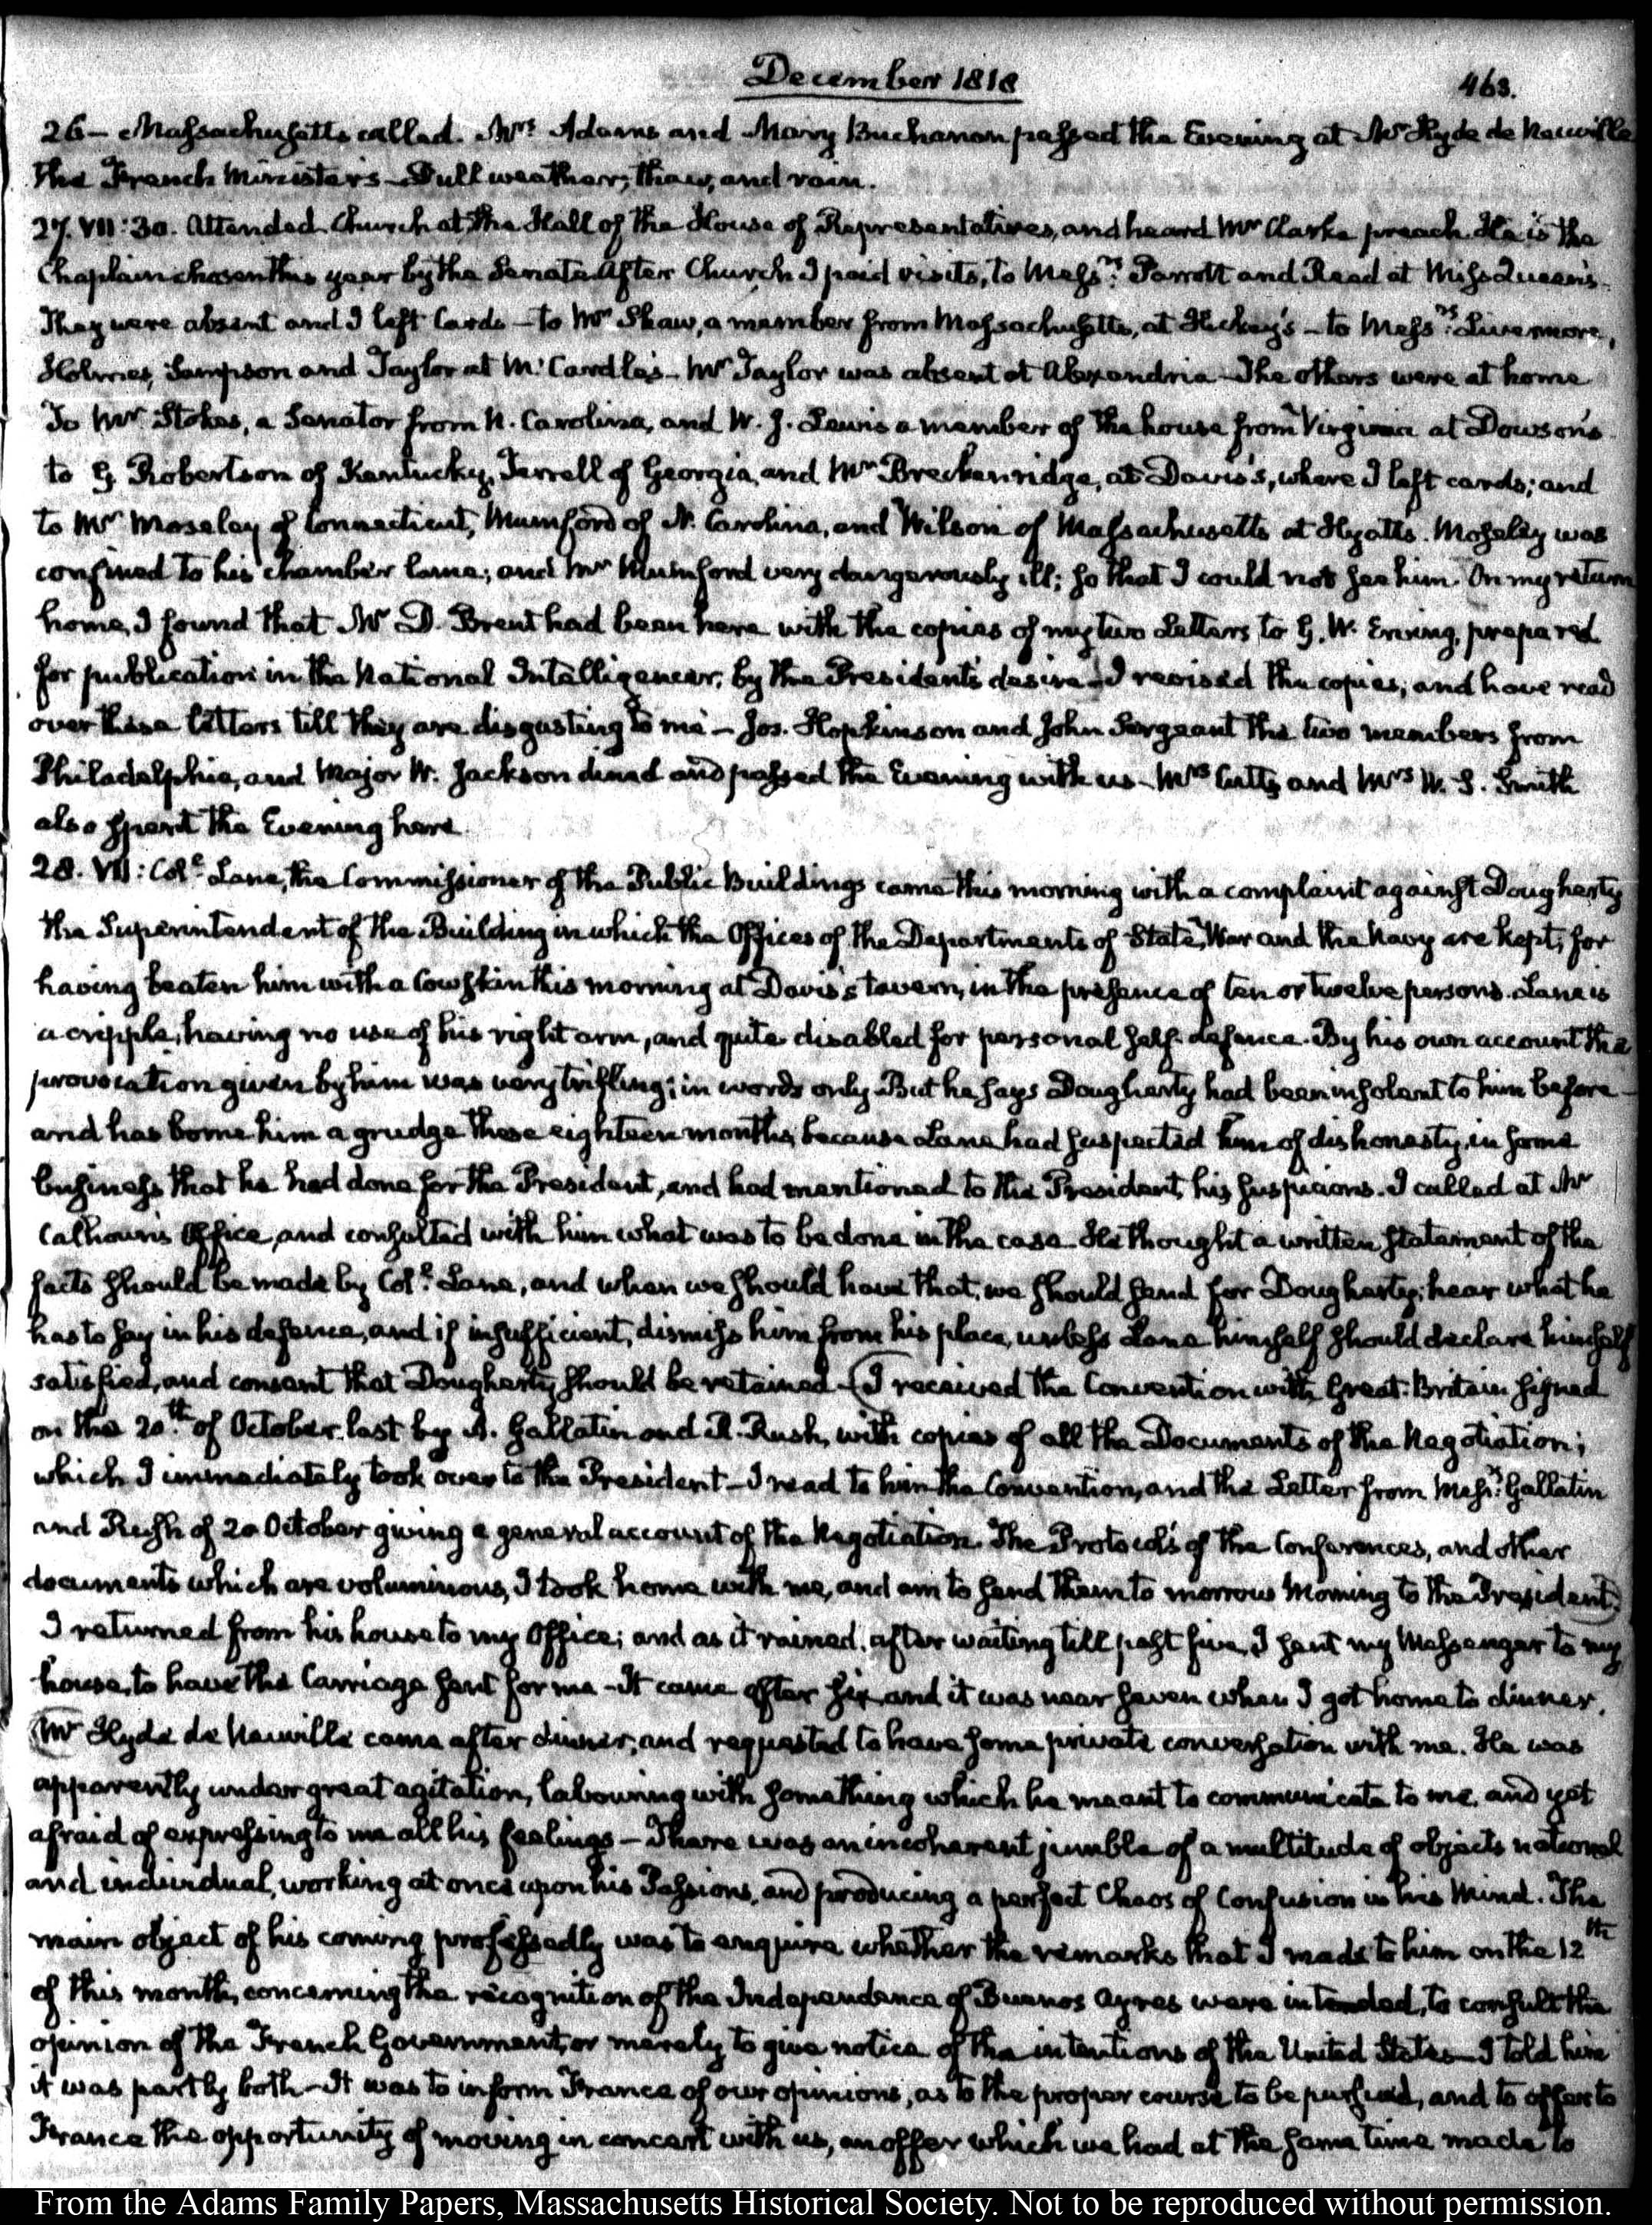 December 1818
463.
26 - Massachusetts called. Mrs Adams and Mary Buchanan passed the Evening at Mr Hyde de Neuville
the French Ministers - Dull weather; thaw, and rain.
27. VII:30. Attended Church at the Hall of the House of Representatives, and heard Mr Clarke preach. He is the
Chaplain chosen this year by the Senate. After Church I paid visits, to Messrs: Parrott and Read at Miss Queen's.
They were absent and I left Cards - to Mr Shaw, a member from Massachusetts, at Hickey's - to Messrs: Livermore,
Holmes, Sampson and Taylor at McCardle's - Mr Taylor was absent at Alexandria - The others were at home
To Mr Stokes, a Senator from N. Carolina, and W. J. Lewis a member of the house from Virginia at Dowson's
to G Robertson of Kentucky, Terrell of Georgia, and Mr Breckenridge, at Davis's, where I left cards; and
to Mr Moseley of Connecticut, Mumford of N. Carolina, and Wilson of Massachusetts at Hyatts. Moseley was
confined to his chamber lame; and Mr Mumford very dangerously ill; so that I could not see him. On my return
home, I found that Mr D. Brent had been here with the copies of my two Letters to G. W. Erving, prepared
for publication in the National Intelligencer, by the President's desire - I revised the copies, and have read
over these letters till they are disgusting to me - Jos. Hopkinson and John Sergeant the two members from
Philadelphia, and Major W. Jackson dined and passed the Evening with us - Mrs Cutts and Mrs W. S. Smith
also spent the Evening here.
28. VII: Col.l Lane, the Commissioner of the Public Buildings came this morning with a complaint against Dougherty
the Superintendent of the Building in which the Offices of the Departments of State, War and the Navy are kept, for
having beaten him with a Cowskin this morning at Davis's tavern, in the presence of ten or twelve persons. Lane is
a cripple, having no use of his right arm, and quite disabled for personal self defence. By his own account the
provocation given by him was very trifling; in words only - But he says Dougherty had been insolent to him before -
and has borne him a grudge these eighteen months, because Lane had suspected him of dishonesty, in some
business that he had done for the President, and had mentioned to the President, his suspicions. I called at Mr
Calhoun's Office, and consulted with him what was to be done in the case. He thought a written statement of the
facts should be made by Col.l Lane, and when we should have that, we should send for Dougherty; hear what he
has to say in his defence, and if insufficient, dismiss him from his place, unless Lane himself should declare himself
satisfied, and consent that Dougherty should be retained - (I received the Convention with Great-Britain signed
on the 20.th of October last by A. Gallatin and R. Rush, with copies of all the Documents of the Negotiation;
which I immediately took over to the President - I read to him the Convention, and the Letter from Messrs: Gallatin
and Rush of 20 October giving a general account of the Negotiation. The Protocols of the Conferences, and other
documents which are voluminous, I took home with me, and am to send them to morrow Morning to the President.)
I returned from his house to my Office; and as it rained, after waiting till past five, I sent my Messenger to my
house, to have the Carriage sent for me - It came after six, and it was near seven when I got home to dinner.
(Mr Hyde de Neuville came after dinner, and requested to have some private conversation with me. He was
apparently under great agitation, labouring with something which he meant to communicate to me, and yet
afraid of expressing to me all his feelings - There was an incoherent jumble of a multitude of objects national
and individual, working at once upon his Passions, and producing a perfect Chaos of Confusion in his Mind. The
main object of his coming professedly was to enquire whether the remarks that I made to him on the 12th
of this month, concerning the recognition of the Independence of Buenos Ayres were intended, to consult the
opinion of the French Government, or merely to give notice of the intentions of the United States - I told him
it was partly both - It was to inform France of our opinions, as to the proper course to be pursued, and to offer to
France the opportunity of moving in concert with us, an offer which we had at the same time made to
From the Adams Family Papers, Massachusetts Historical Society. Not to be reproduced without permission.